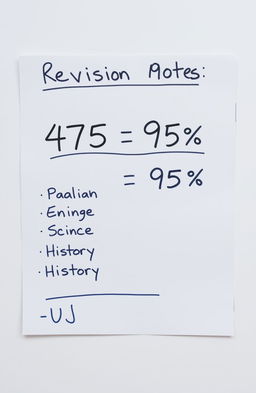 Revision Notes:
475 = 95%
= 95%
· Paalian
· Eninge
· Scince
· History
· History
-UJ